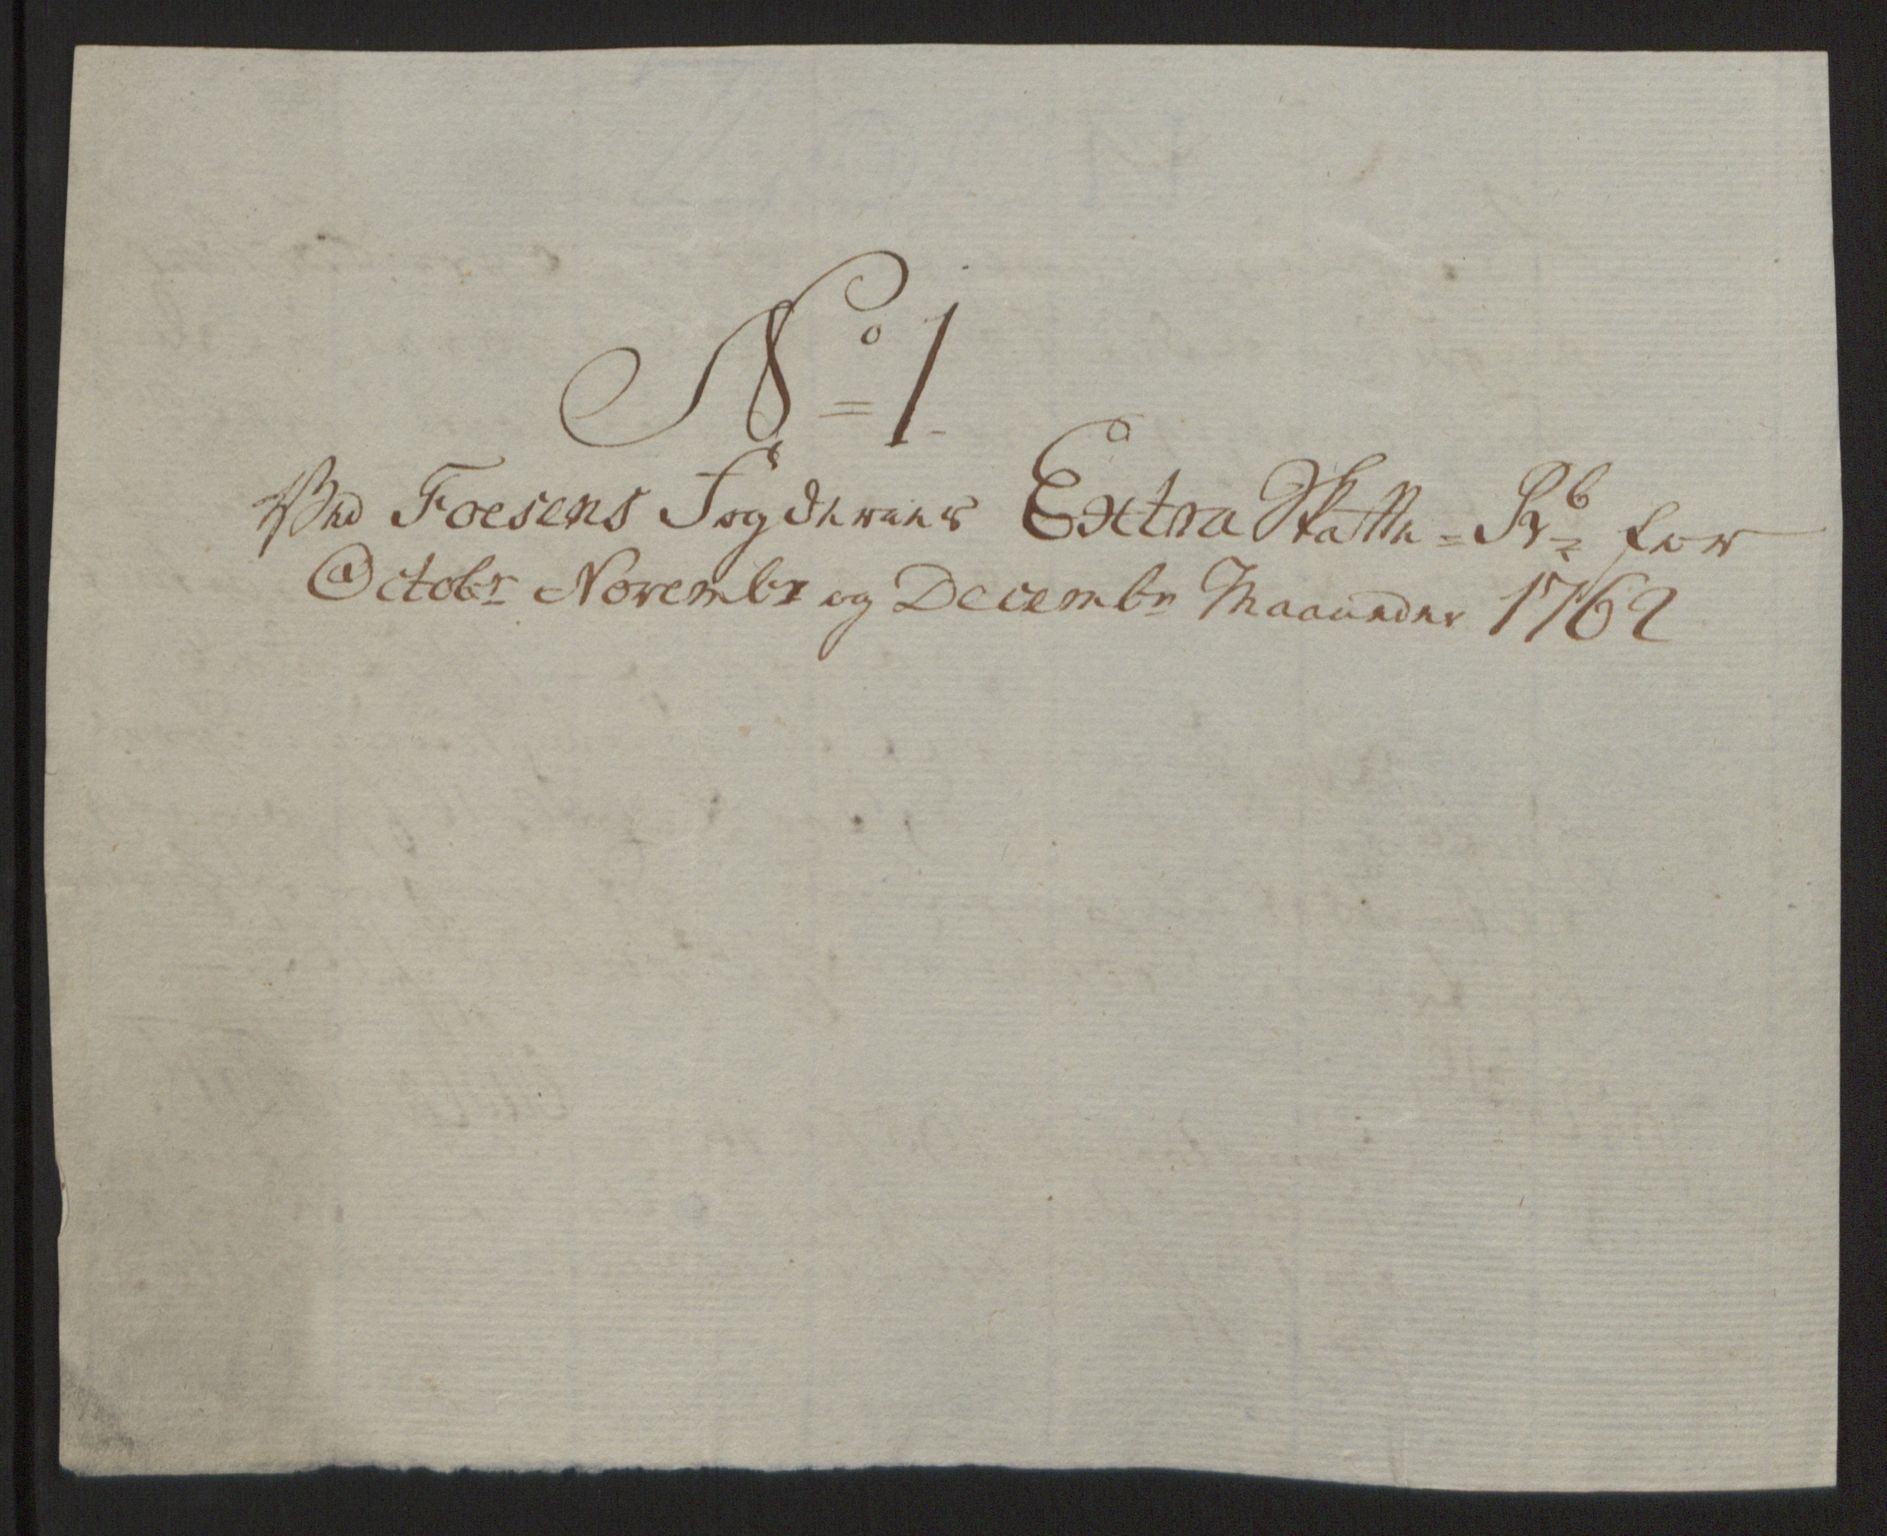 No 1
Ved Foesens Fogderies Extra Skatte = Rb for
Octobr Novembr og Decembr Maaneder 1762